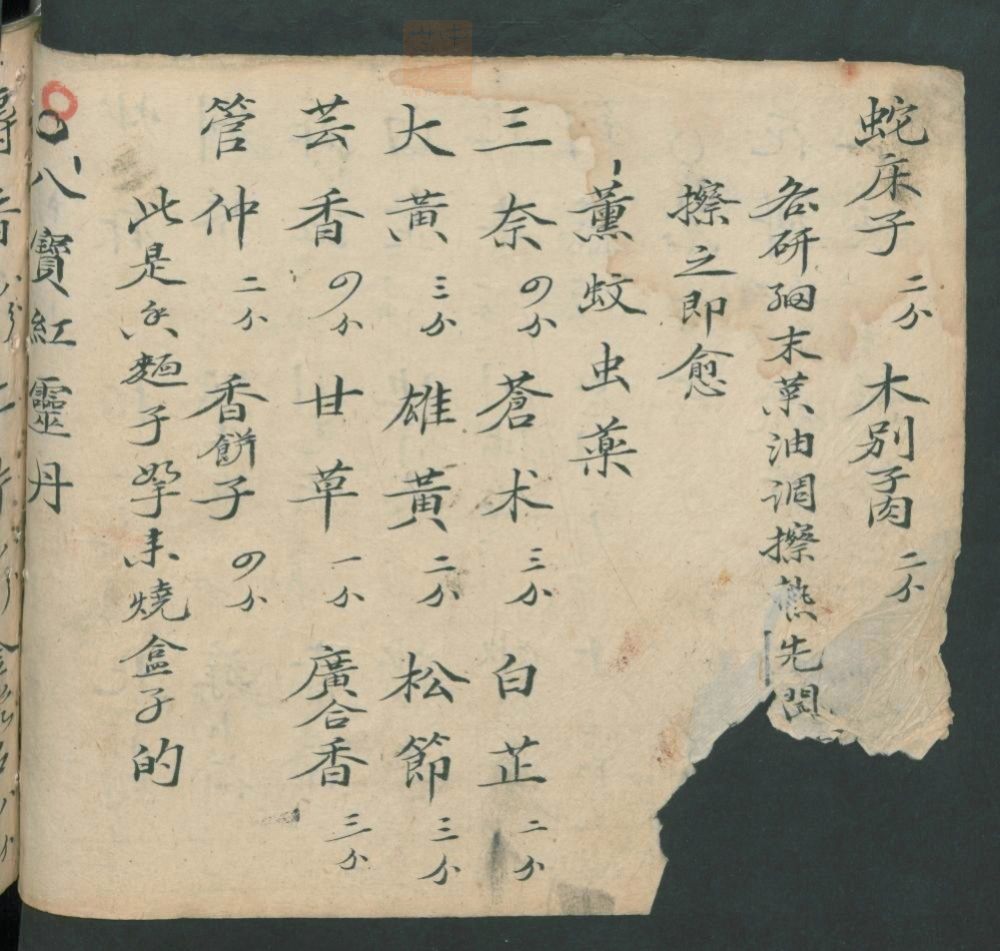 蛇床子 二分 木別子肉 二分
各研細末菓油调擦熊先
擦之即愈
薰蚊虫薬
三奈 四分 蒼术 三分 白芷 二分
大黃 三分 雄黃 二分 松節 三分
芸香 四分 甘草 一分 廣合香 三分
管仲 二分 香餅子 四分
此是香麵子拏未燒盒子的
八寶紅靈丹